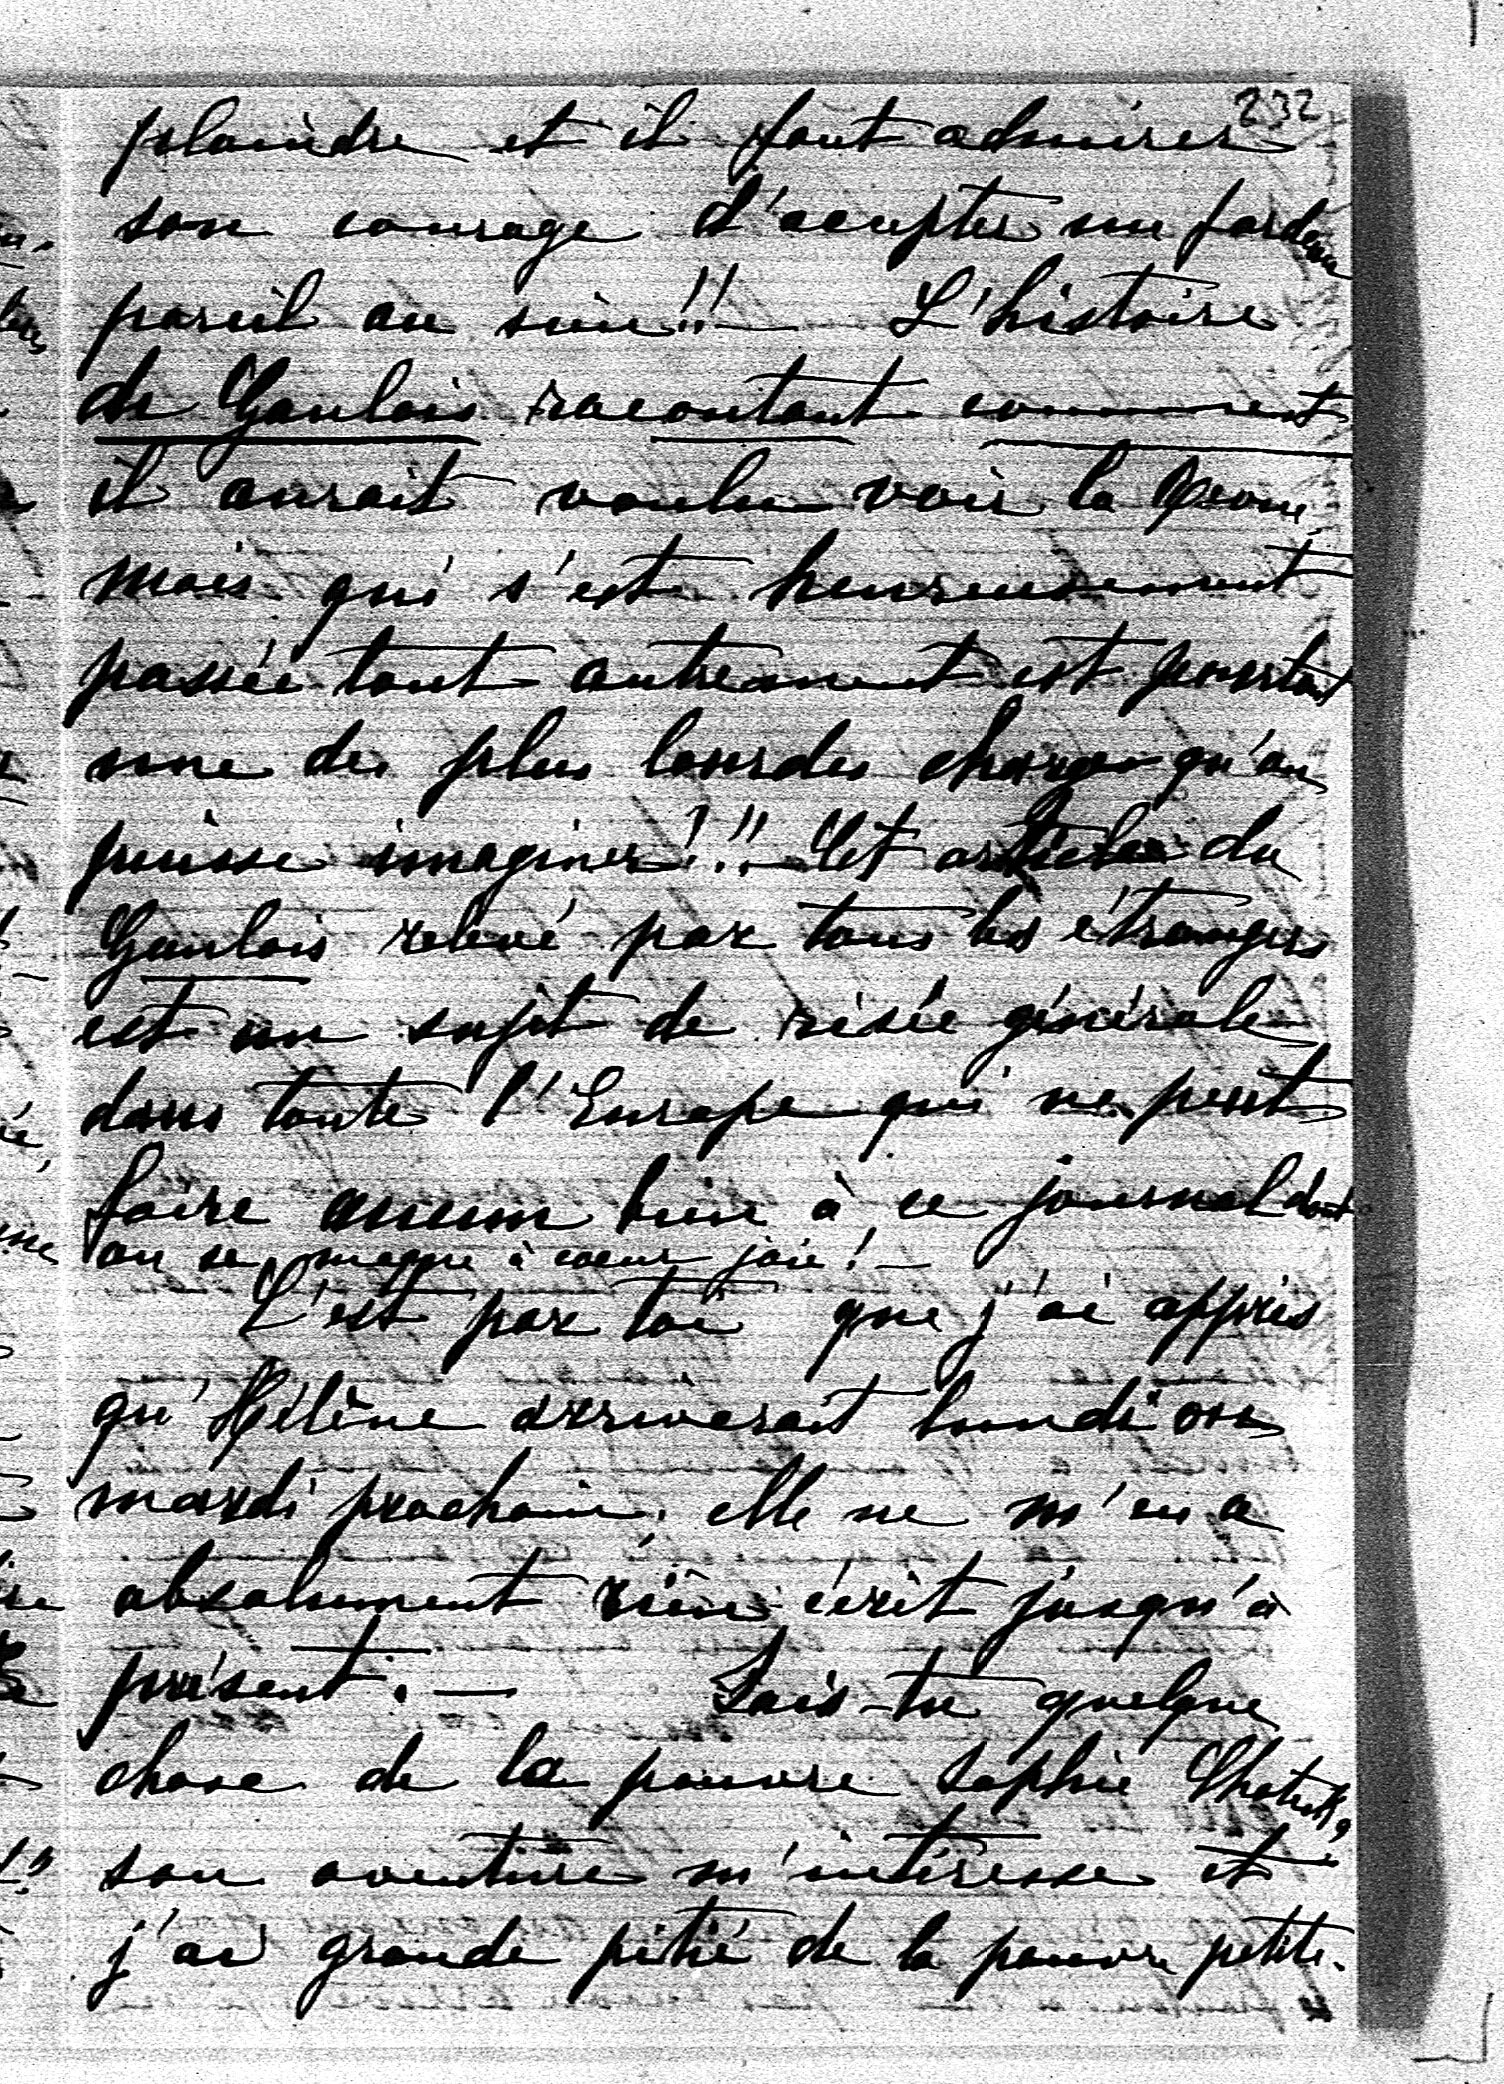 232
plaindre et il faut admirer
son courage d'accepter un fardeau
pareil au sien!! L'histoire
du Gaulois racontant comment
il aurait voulu voir la
mais qui s'est heureusement
passée tout autrement est pourtant
une des plus lourdes charges qu'on
puisse imaginer!!! Cet article du
Gaulois relevé par tous les étrangers
est un sujet de risée générale
dans toute l'Europe qui ne peut
faire aucun bien à ce journal dont
on se moque à coeur joie! —
C'est par toi que j'ai appris
qu'Hélène arriverait lundi ou
mardi prochain, elle ne m'en a
absolument rien écrit jusqu'à
présent. — Sais-tu quelque
chose de la pauvre Sophie
son aventure m'intéresse et
j'ai grande pitié de la pauvre petite.